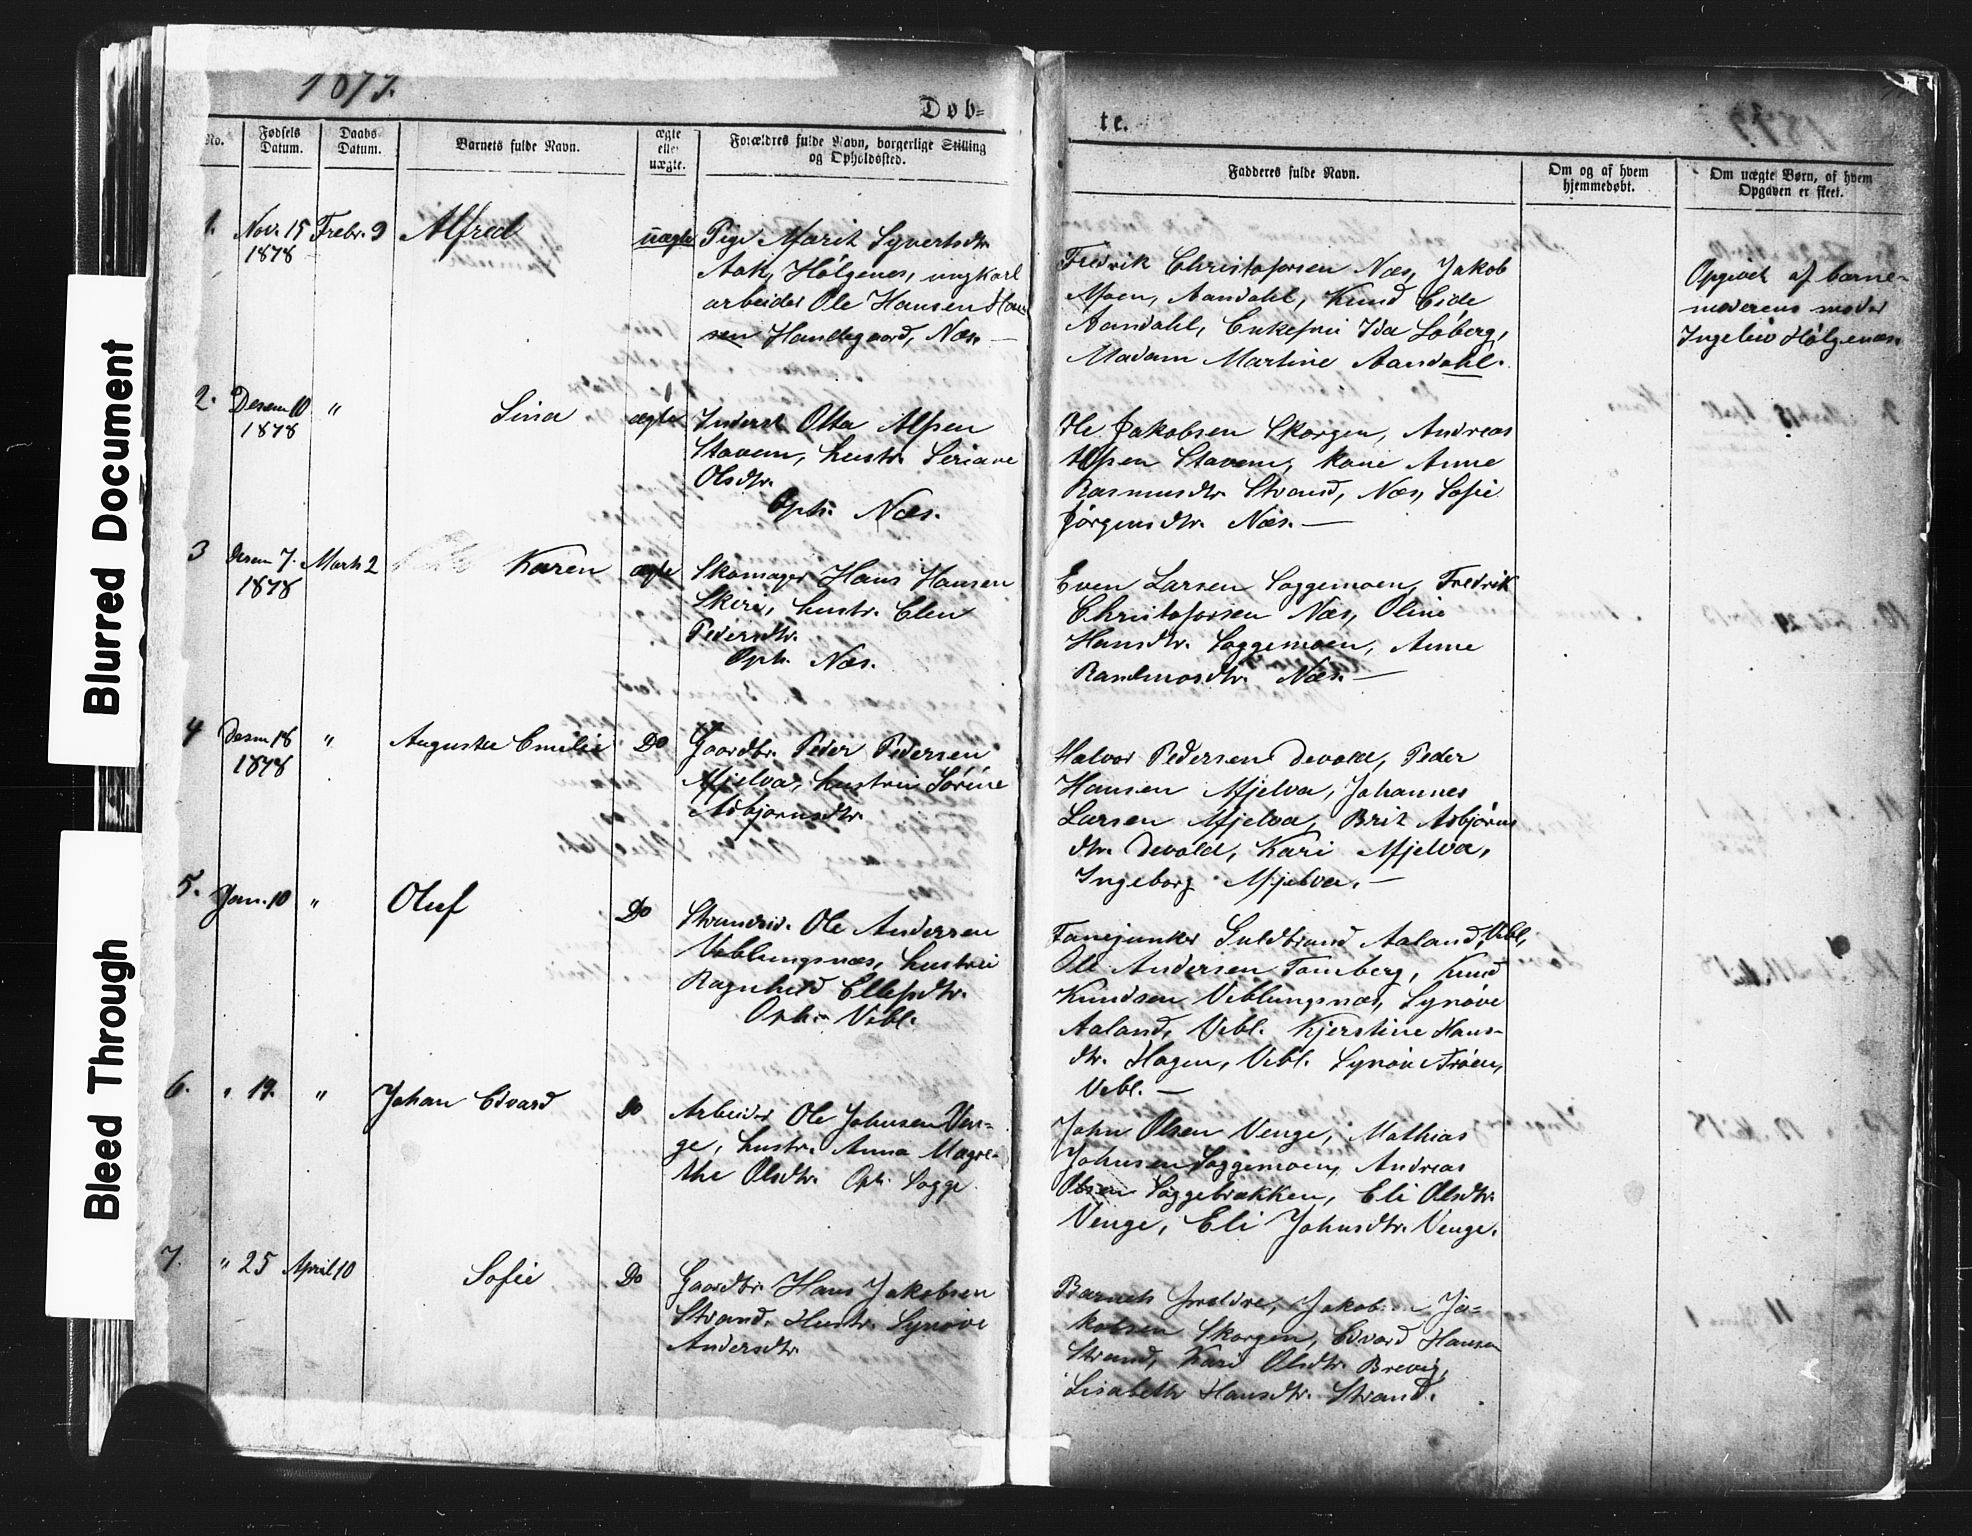 1879.
Döb=
te.
1879
No.
Fødsels Datum.
Daabs Datum.
Barnets fulde Navn.
ægte eller uægte.
Forældres fulde Navn, borgerlige Stilling og Opholdssted.
Fadderes fulde Navn.
Om og af hvem hjemmedøbt.
Om uægte Børn, af hvem Opgaven er skeet.
1. Novr. 15 1878 Febr. 9 Alfred uægte
Pige Marit Syvertsdtr.
Aak, Hølgenes, ungkarl
arbeider Ole Hansen Han-
sen Handegaard, Næs. —
Fredrik Christofersen Næs, Jakob
Moen, Aandahl, Knud Eide
Aandahl, Enkefrue Ida Løberg,
Madam Martine Aandahl.
Opgivet af barne-
moderens moder
Ingebor Hølgenæs.
2. Desem 10 1878 " Sina ægte
Inderst Otta Alfsen
Stavem, hustr. Seriane
Olsdtr.
Oph. Næs.
Ole Jakobsen Skorgen, Andreas
Alfsen Stavem, kone Anne
Rasmusdtr. Strand, Næs, Sofie
Jørgensdtr. Næs. —
3 Desem 7. 1878 Marts 2 Karen ægte
Skomager Hans Hansen
Skiri, hustr. Elen
Pedersdtr.
Oph. Næs.
Even Larsen Soggemoen, Fredrik
Christofersen Næs, Oline
Hansdtr. Soggemoen, Anne
Randmosdtr. Næs. —
4 Desm 18 1878 " Augusta Emilie Do
Gaardbr. Peder Pedersen
Mjelva, hustru Sørine
Asbjørnsdtr.
Halvor Pedersen Devold, Peder
Hansen Mjelva, Johannes
Larsen Mjelva, Brit Asbjørns
dtr. Devold, Kari Mjelva,
Ingeborg Mjelva. —
5. Jan. 10 " Oluf Do
Strandsid. Ole Andersen
Veblungsnæs, hustru
Ragnhild Ellefsdtr.
Oph. Vebl.
Fanejunker Guldbrand Aaland, Vebl,
Ole Andersen Tomberg, Knud
Knudsen Veblungsnæs, Synøve
Aaland, Vebl. Kjerstine Hans-
dtr. Hagen, Vebl. Synøve Trøen,
Vebl. —
6. " 19. " Johan Edvard Do
Arbeider Ole Johnsen Ven-
ge, hustr. Anna Magre-
the Olsdtr. Oph. Sogge
John Olsen Venge, Mathias
Johnsen Soggemoen, Andreas
Olsen Soggebrækken, Eli Olsdtr.
Venge, Eli Johnsdtr. Venge.
7. " 25 April 10 Sofie Do
Gaardbr. Hans Jakobsen
Strand, Hustr. Synøve
Andersdtr.
Barnets forældre, Jakob Ja-
kobsen Skorgen, Edvard Hansen
Strand, Kari Olsdtr. Brevig,
Lisabeth Hansdtr. Strand.
Blurred Document
Bleed Through